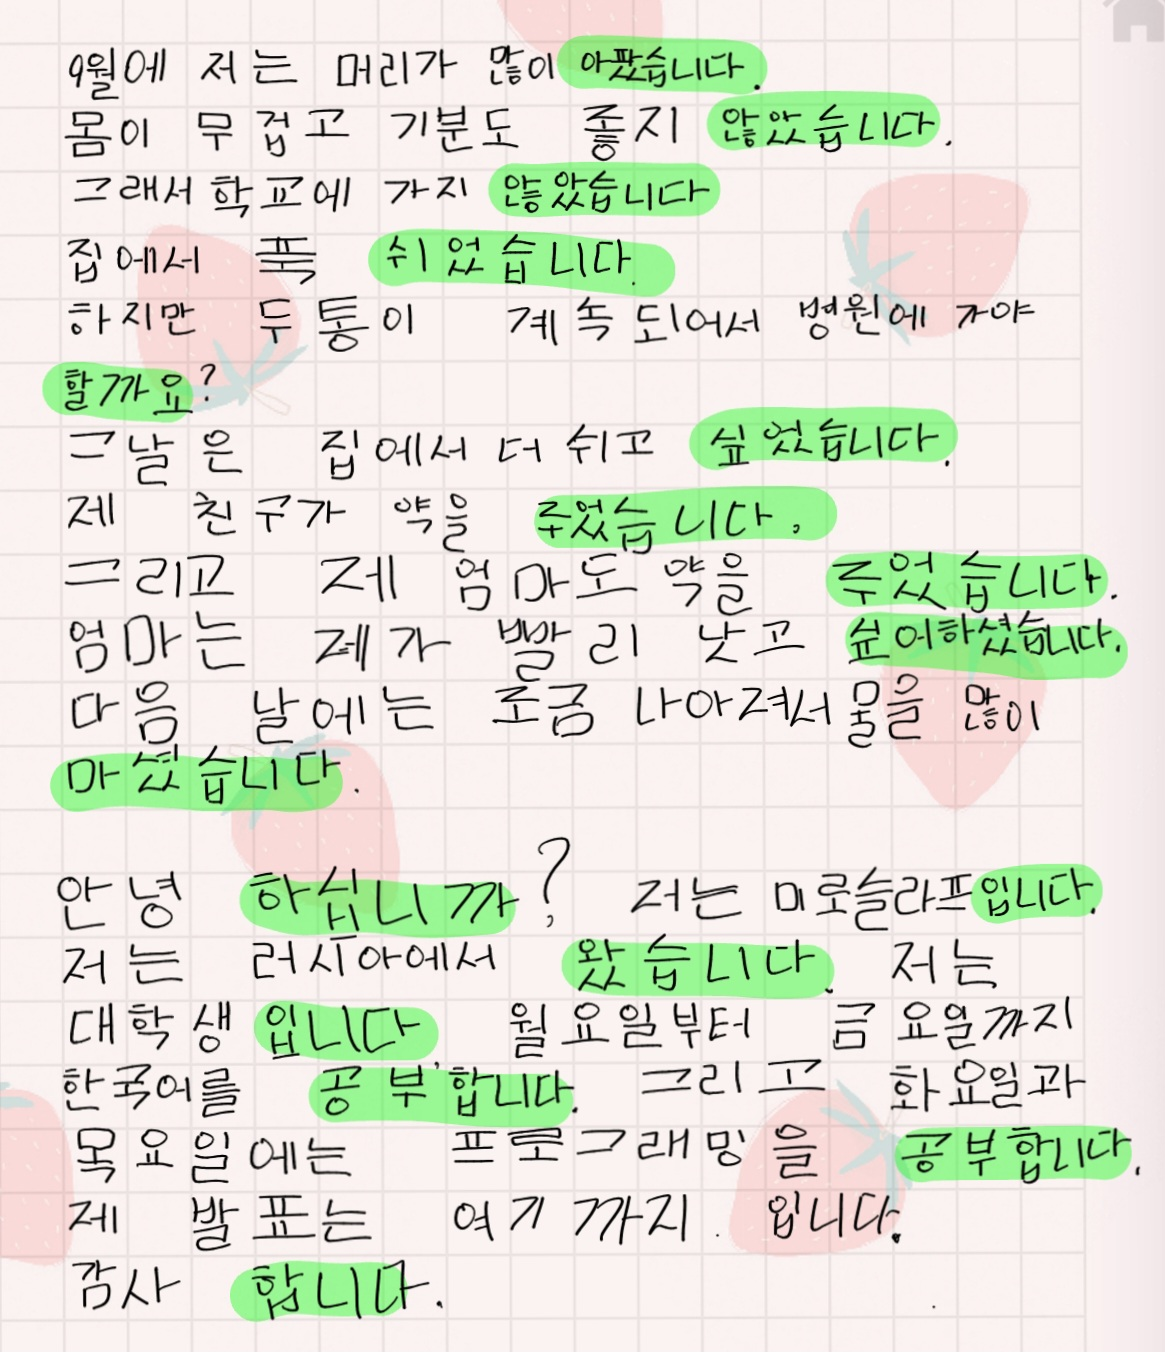 9월에 저는 머리가 많이 아팠습니다.
몸이 무겁고 기분도 좋지 않았습니다.
그래서 학교에 가지 않았습니다
집에서 푹 쉬었습니다.
하지만 두통이 계속 되어서 병원에 가야
할까요?
그날은 집에서 더 쉬고 싶었습니다.
제 친구가 약을 주었습니다.
그리고 제 엄마도 약을 주었습니다.
엄마는 제가 빨리 낫고 싶어하셨습니다.
다음 날에는 조금 나아져서 물을 많이
마셨습니다.
안녕 하십니까? 저는 미로슬라프입니다.
저는 러시아에서 왔습니다. 저는
대학생 입니다. 월요일부터 금요일까지
한국어를 공부합니다. 그리고 화요일과
목요일에는 프로그래밍을 공부합니다.
제 발표는 여기까지 입니다.
감사 합니다.